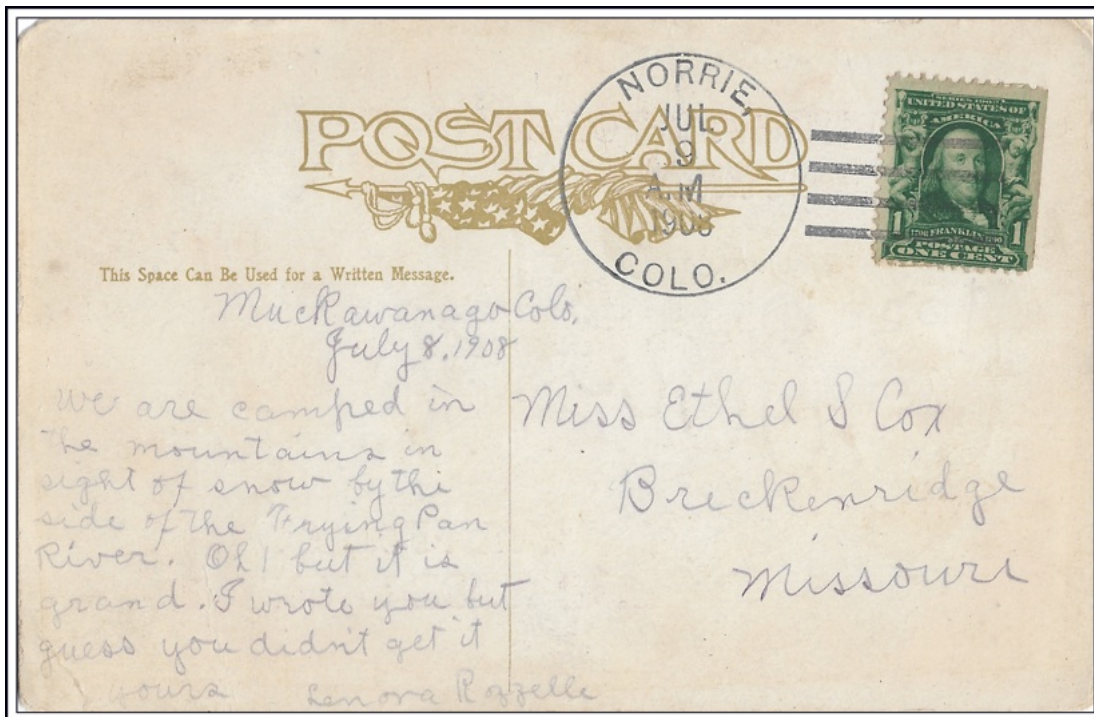 POST CARD
NORRIE,
JUL
9
A.M
1908
COLO.
SERIES 1902
UNITED STATES OF
AMERICA
1
1706 FRANKLIN 1790
1
POSTAGE
ONE CENT
This Space Can Be Used for a Written Message.
Muckawanago Colo,
July 8, 1908
We are camped in
the mountains in
sight of snow by the
side of the Frying Pan
River. Oh! but it is
grand. I wrote you but
guess you didn't get it
yours Lenora Rozzelle
Miss Ethel S Cox
Breckenridge
Missouri